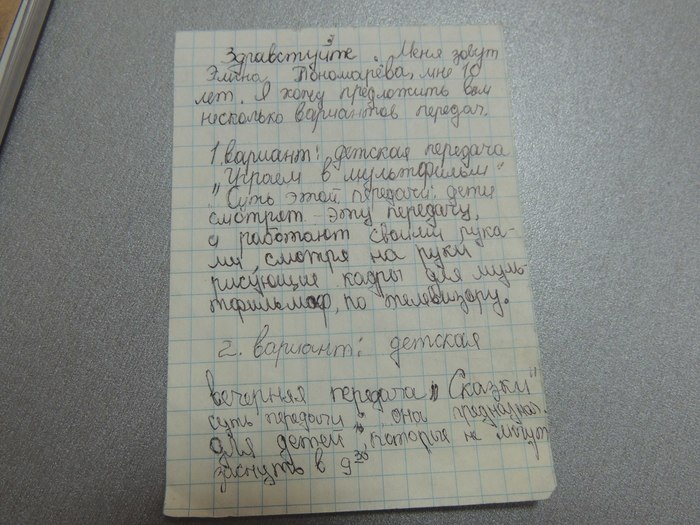 Здравствуйте. Меня зовут
Элина Пономарёва, мне 10
лет. Я хочу предложить вам
несколько вариантов передач.
1. вариант: детская передача
"Играем в мультфильм"
Суть этой передачи: дети
смотрет эту передачу,
и работают своими рука-
ми, смотря на руки
рисующие кадры для муль-
тфильмоф, по телевизору.
2. вариант: детская
вечерняя передача "Сказки"
суть передачи: она предназнач.
для детей, которые не могут
заснуть в 9³⁰